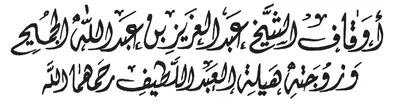 أوقاف الشيخ عبدالعزيز بن عبدالله الجميح
وزوجته هيلة العبداللطيف رحمهما الله